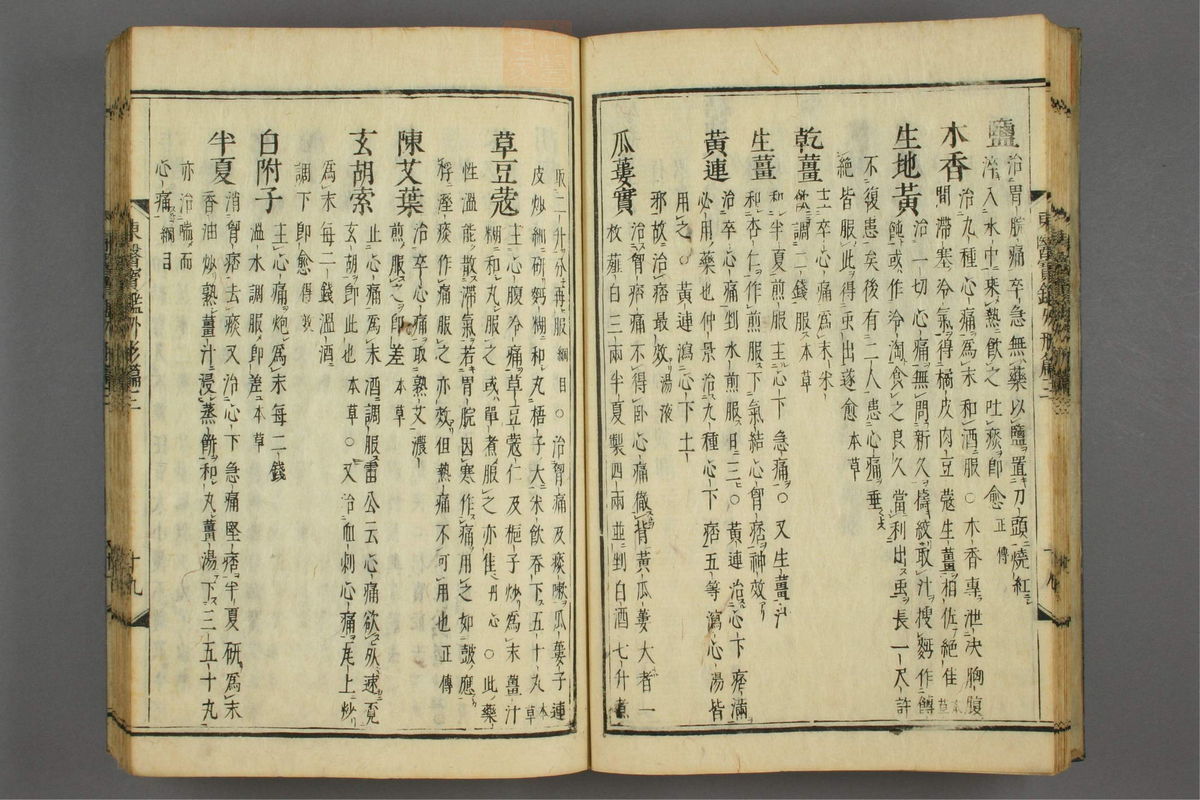 鹽 治胃脘痛卒急無藥以鹽置刀頭燒紅
淬入水中乘熱飲之吐痰卽愈 正傳
木香 治九種心痛爲末和酒服○木香專泄決胸腹
間滯塞冷氣得橘皮肉豆蔻生薑相佐絕佳 本草
生地黃 治一切心痛無問新久擣絞取汁搜麪作餺
飥或作冷淘食之良久當利出虫長一尺許
不復患矣後有二人患心痛垂
絕皆服此得虫出遂愈 本草
乾薑 主卒心痛爲末米
飲調二錢服 本草
生薑 和半夏煎服主心下急痛○又生薑汁
和杏仁作煎服下氣結心胸痞神效
黃連 治卒心痛剉水煎服日三○黃連治心下痞滿
必用藥也仲景治九種心下痞五等瀉心湯皆
用之○黃連瀉心下土
邪故治痞最效 湯液
瓜蔞實 治胸痞不得臥心痛徹背黃瓜蔞大者一
枚薤白三兩半夏製四兩並剉白酒七升煮
東醫寶鑑外形篇三 十九
取二升分再服 綱目○治胸痛及痰嗽瓜蔞子連
皮炒細研麪糊和丸梧子大米飲吞下五十丸 本草
草豆蔻 主心腹冷痛草豆蔻仁及梔子炒爲末薑汁
糊和丸服之或單煮服之亦佳 丹心○此藥
性溫能散滯氣若胃脘因寒作痛用之如鼓應
桴溼痰作痛服之亦效但熱痛不可用也 正傳
陳艾葉 治卒心痛取熟艾濃
煎服之卽差 本草
玄胡索 止心痛爲末酒調服雷公云心痛欲死速覓
玄胡卽此也 本草○又治血刺心痛尾上炒
爲末每二錢溫酒
調下卽愈 得效
白附子 主心痛炮爲末每二錢
溫水調服卽差 本草
半夏 消胸痞去痰又治心下急痛堅痞半夏研爲末
香油炒熟薑汁浸蒸餠和丸薑湯下三五十丸
亦治喘而
心痛 綱目
東醫寶鑑外形篇三 十九